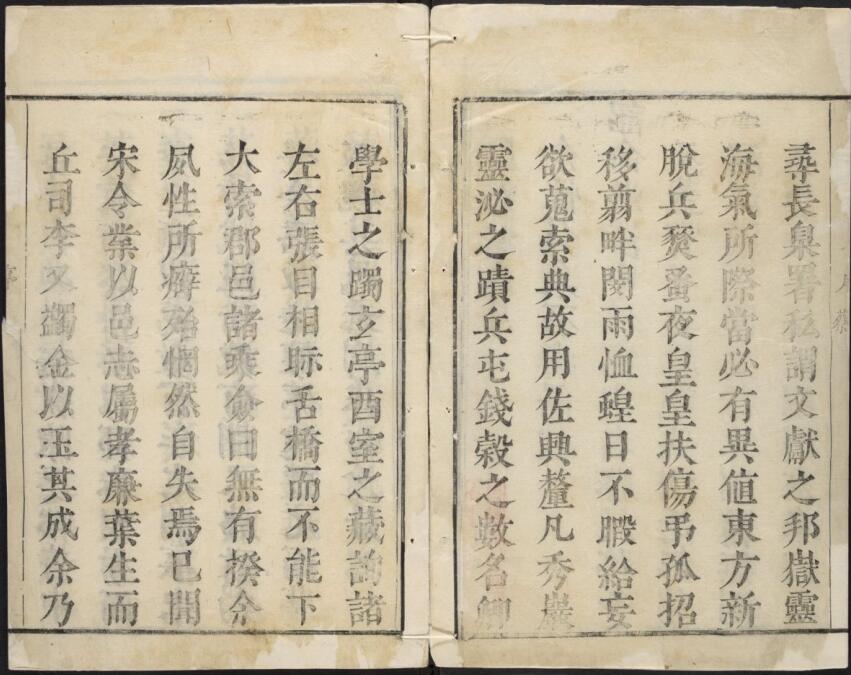 尋長臬署私謂文獻之邦嶽靈
海氣所際當必有異値東方新
脫兵燹蚤夜皇皇扶傷弔孤招
移翦畔閔雨恤蝗日不暇給妄
欲蒐索典故用佐興釐凡秀巖
靈泌之蹟兵屯錢穀之數名卿
學士之躅玄亭酉室之藏詢諸
左右張目相眎舌橋而不能下
大索郡邑諸乘僉曰無有揆余
夙性所癖殆惘然自失焉已聞
宋令業以邑志屬孝廉葉生而
丘司李又蠲金以玉其成余乃